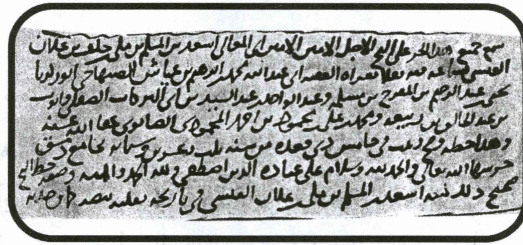 سمع جميع هذا الجزء على الشيخ الأجل الأمين الأمير أبي المعالي أسعد بن المسلم بن مكي بن خلف بن علان
القيسي سماعه فيه نقلا بقراءة الفقيه أبي عبد الله محمد بن إبراهيم بن عباس الصنهاجي أبو زكريا
يحيى بن عبد الرحيم بن المفرج بن مسلمة وعبد الواحد بن عبد السيد بن أبي البركات الصقلي وأيوب
بن عبد الخالق بن ربيعة ومحمد بن علي بن محمود بن أحمد المحمودي الصابوني عفا الله عنه
وهذا خطه وصح وثبت في خامس ذي قعدة من سنة ثلاث وعشرين وستمائة بجامع دمشق
حرسها الله تعالى والحمد لله وسلام على عباده الذين اصطفى ولله الحمد والمنة وصورة خط الشيخ
صحيح ذلك كتبه أسعد بن المسلم بن مكي بن علان القيسي في تاريخه نقلته